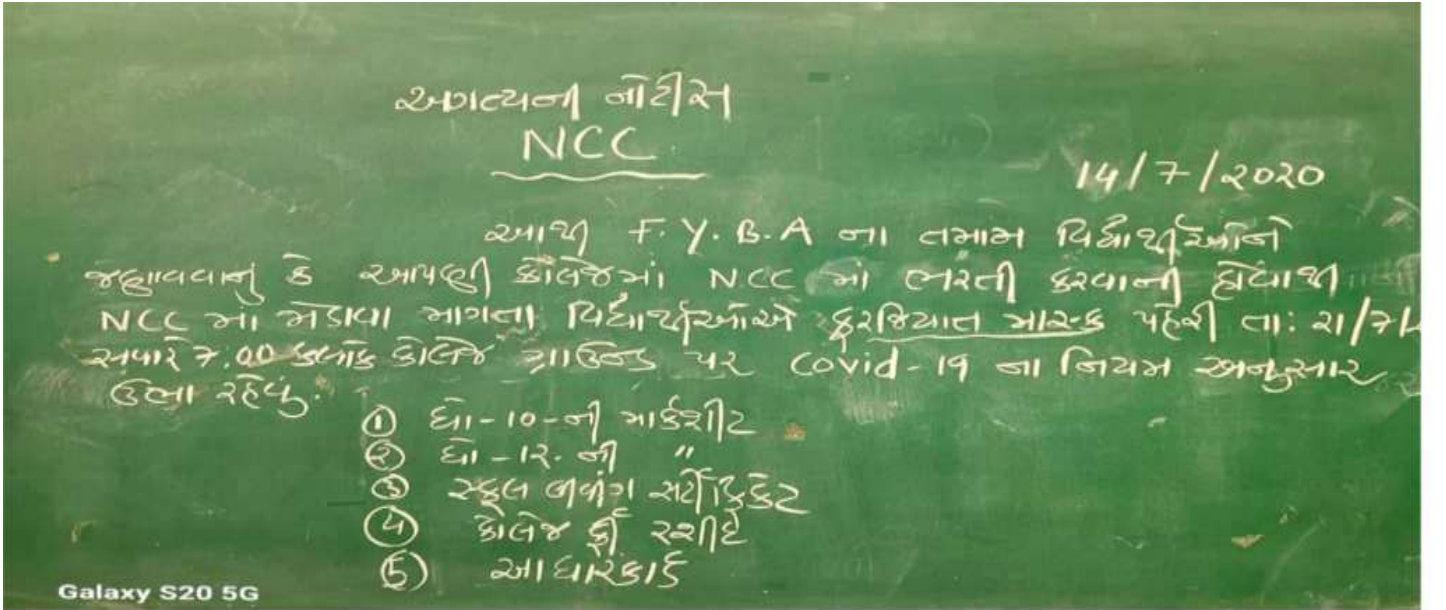 અગત્યની નોટીસ
NCC
14/7/2020
આથી F.Y.B.A ના તમામ વિદ્યાર્થીઓને
જણાવવાનું કે આપણી કોલેજમાં NCC માં ભરતી કરવાની હોવાથી
NCC માં જોડાવા માગતા વિદ્યાર્થીઓએ ફરજિયાત માસ્ક પહેરી તા: ૨૧/૭/
સવારે 7:00 કલાકે કોલેજ ગ્રાઉન્ડ પર Covid-19 ના નિયમ અનુસાર
ઉભા રહેવું.
① ધો-10-ની માર્કશીટ
② ધો-12. ની "
③ સ્કૂલ લીવીંગ સર્ટીફિકેટ
④ કોલેજ ફી રશીદ
⑤ આધારકાર્ડ
Galaxy S20 5G